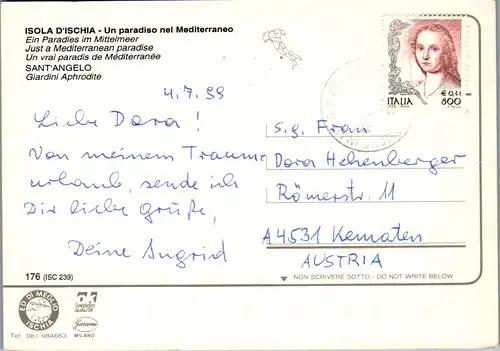 ISOLA D'ISCHIA - Un paradiso nel Mediterraneo
Ein Paradies im Mittelmeer
Just a Mediterranean paradise
Un vrai paradis de Méditerranée
SANT'ANGELO
Giardini Aphrodite
€ 0,41
ITALIA
800
4.7.99
Liebe Dora!
Von meinem Traum-
urlaub, sende ich
Dir liebe Grüße,
Deine Ingrid
S.g. Frau
Dora Hehenberger
Römerstr. 11
A 4531 Kematen
AUSTRIA
176 (ISC 239)
NON SCRIVERE SOTTO - DO NOT WRITE BELOW
ED. DI MEGLIO
ISCHIA
Tel. 081-984663
ak
Garami
MILANO